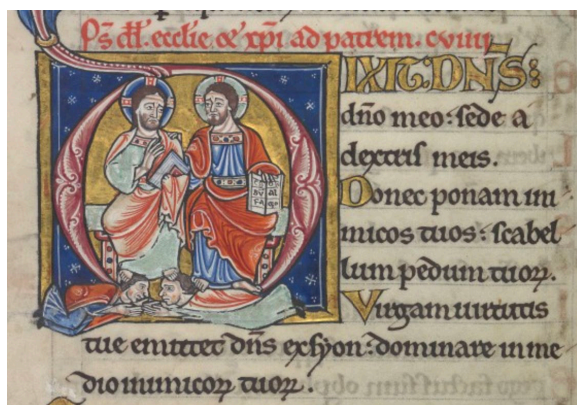 ad patrem. cviiii
DIXIT DN̄S:
dn̄o meo: sede a
dextris meis.
Donec ponam ini
micos tuos: scabel
lum pedum tuoꝝ.
Virgam uirtutis
tue emittet dn̄s exsyon: dominare in me
dio inimicoꝝ tuoꝝ.